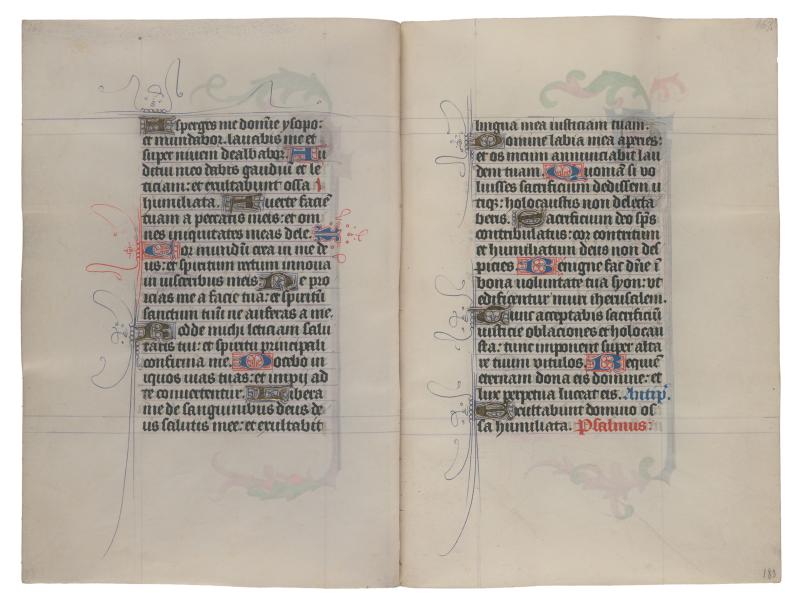 Asperges me domie ysopo:
et mundabor. lavabis me et
super nivem dealbabor. Au
ditui meo dabis gaudiū et le
ticiam: et exultabunt ossa
humiliata. Averte faciē
tuam a peccatis meis: et om
nes iniquitates meas dele.
Cor mundū crea in me de
us: et spiritum rectum innova
in visceribus meis. Ne pro
icias me a facie tua: et spiritū
sanctum tuū ne auferas a me.
Redde michi leticiam salu
taris tui: et spiritu principali
confirma me. Docebo in
iquos vias tuas: et impij ad
te convertentur. Libera
me de sanguinibus deus de
us salutis mee: et exultabit
lingua mea iusticiam tuam.
Domine labia mea aperies:
et os meum annunciabit lau
dem tuam. Quoniā si vo
luisses sacrificium dedissem u
tiqz: holocaustis non delecta
beris. Sacrificium deo sp̄s
contribulatus: cor contritum
et humiliatum deus non des
picies. Benigne fac dn̄e ī
bona voluntate tua syon: ut
edificentur muri iherusalem.
Tunc acceptabis sacrificiū
iusticie oblaciones et holocau
sta: tunc imponent super alta
re tuum vitulos. Requiē
eternam dona eis domine: et
lux perpetua luceat eis. Antiph.
Exultabunt domino os
sa humiliata. Psalmus:
183